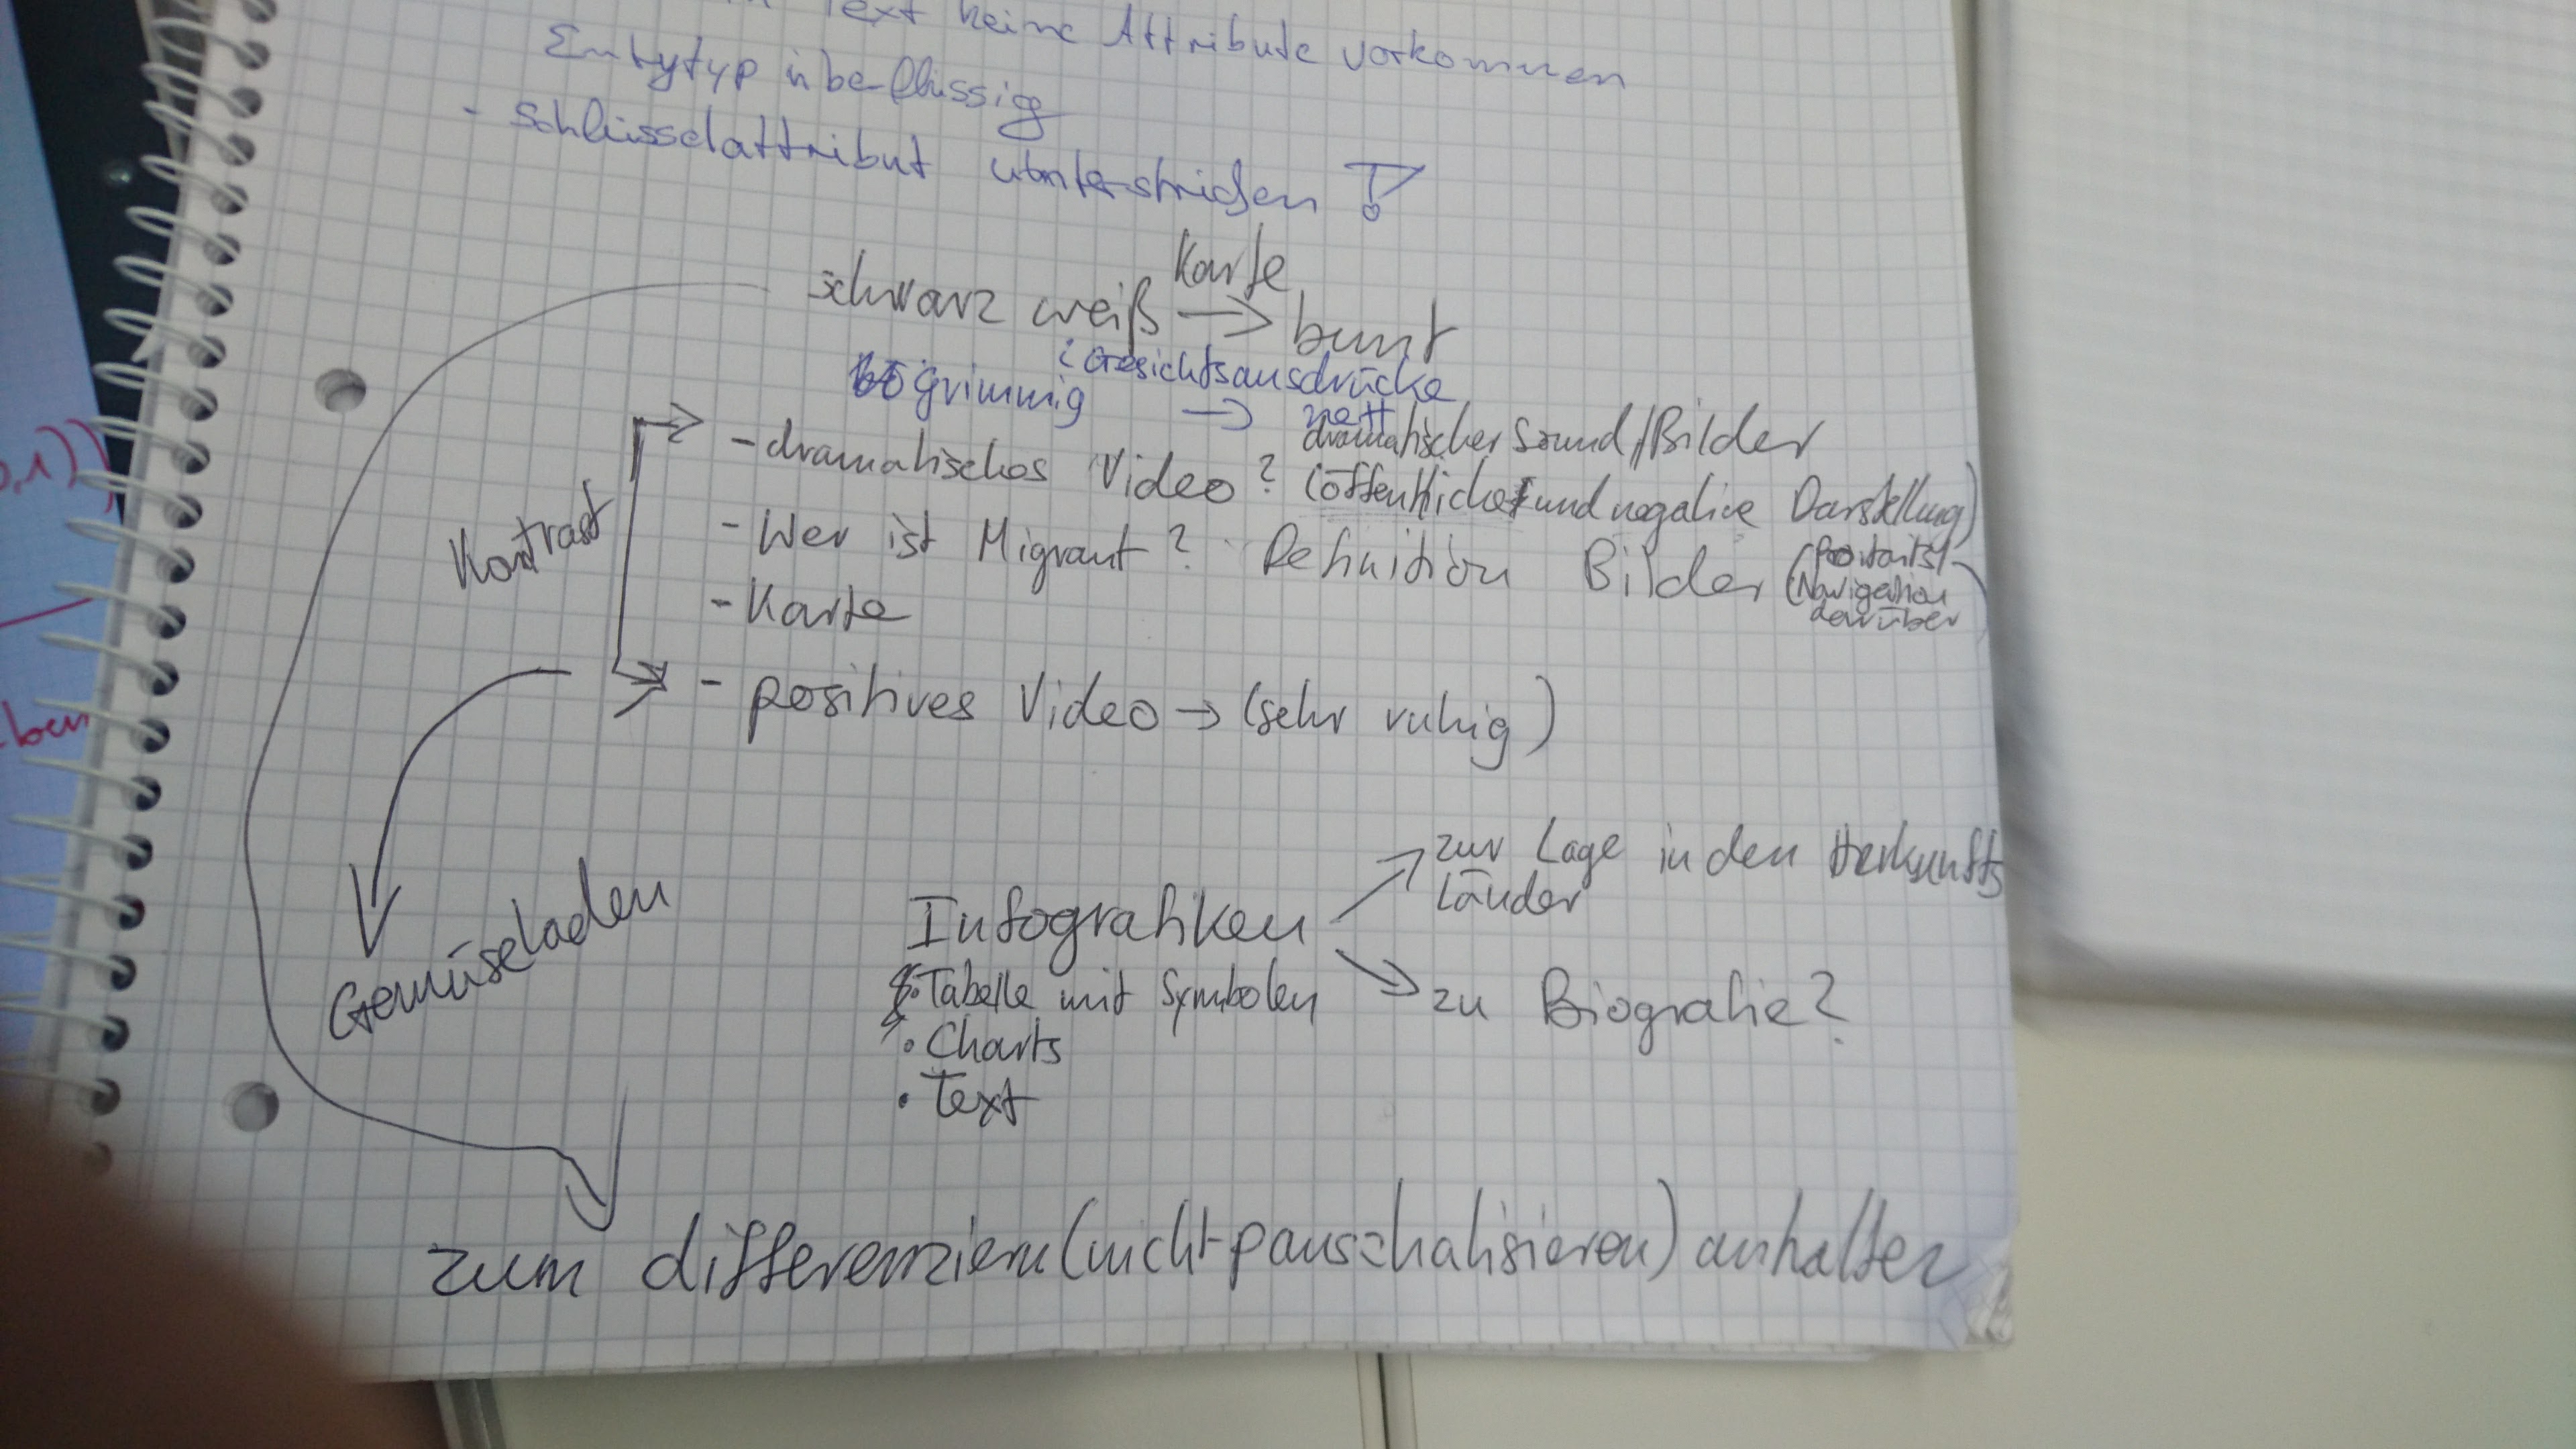 Text keine Attribute vorkommen
überflüssig
- Schlüsselattribut unterstrichen !
Karte
schwarz weiß → bunt
Gesichtsausdrücke
grimmig → nett
dramatischer Sound/Bilder
- dramatisches Video? (öffentliche und negative Darstellung)
Kontrast
- Wer ist Migrant? Definition Bilder (Portraits)
(Navigation
darüber
- Karte
- positives Video → (sehr ruhig)
zur Lage in den Herkunfts
länder
Gemüseladen
Infografiken
• Tabelle mit Symbolen
zu Biografie?
• Charts
• Text
zum differenziern (nicht pauschalisieren) anhalten
ben